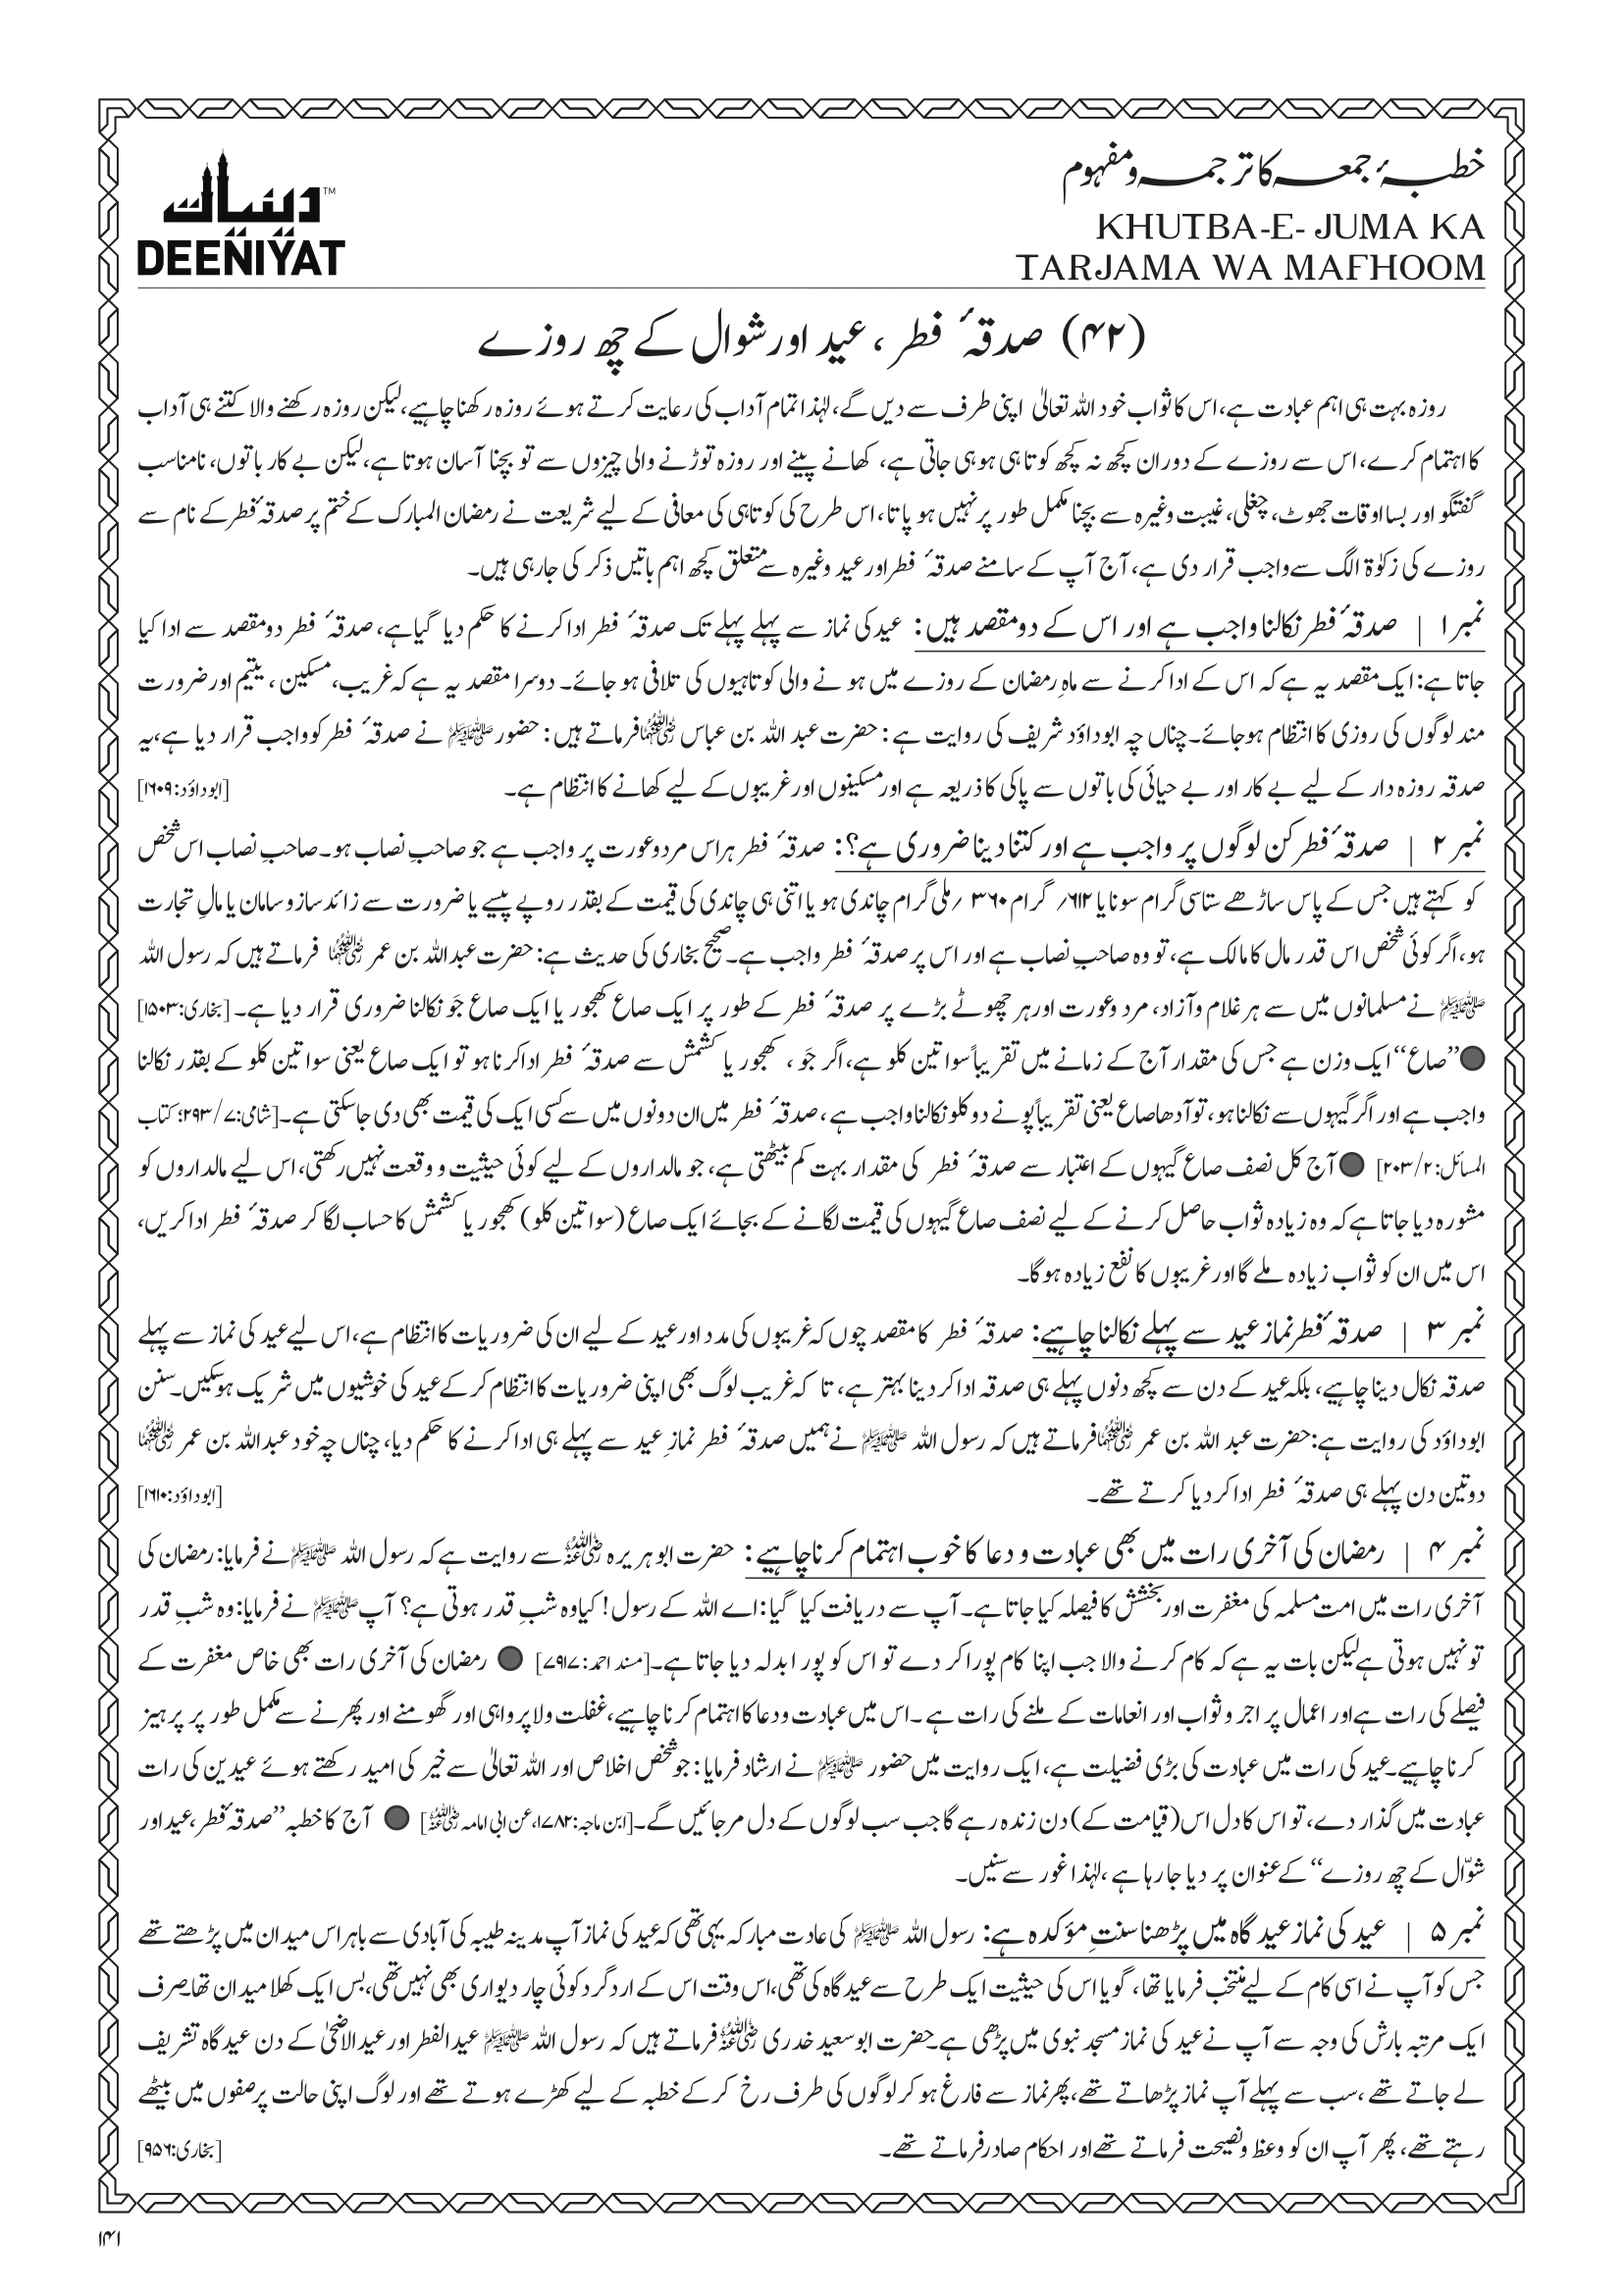 خطبۂ جمعہ کا ترجمہ و مفہوم
KHUTBA-E- JUMA KA
TARJAMA WA MAFHOOM
دینیات™
DEENIYAT
(۴۲) صدقۂ فطر، عید اور شوال کے چھ روزے
روزہ بہت ہی اہم عبادت ہے، اس کا ثواب خود اللہ تعالیٰ اپنی طرف سے دیں گے، لہٰذا تمام آداب کی رعایت کرتے ہوئے روزہ رکھنا چاہیے، لیکن روزہ رکھنے والا کتنے ہی آداب
کا اہتمام کرے، اس سے روزے کے دوران کچھ نہ کچھ کوتاہی ہو ہی جاتی ہے، کھانے پینے اور روزہ توڑنے والی چیزوں سے تو بچنا آسان ہوتا ہے، لیکن بے کار باتوں، نامناسب
گفتگو اور بسا اوقات جھوٹ، چغلی، غیبت وغیرہ سے بچنا مکمل طور پر نہیں ہو پاتا، اس طرح کی کوتاہی کی معافی کے لیے شریعت نے رمضان المبارک کے ختم پر صدقۂ فطر کے نام سے
روزے کی زکوٰۃ الگ سے واجب قرار دی ہے، آج آپ کے سامنے صدقۂ فطر اور عید وغیرہ سے متعلق کچھ اہم باتیں ذکر کی جارہی ہیں۔
نمبر ۱ | صدقۂ فطر نکالنا واجب ہے اور اس کے دو مقصد ہیں: عید کی نماز سے پہلے پہلے تک صدقۂ فطر ادا کرنے کا حکم دیا گیا ہے، صدقۂ فطر دو مقصد سے ادا کیا
جاتا ہے: ایک مقصد یہ ہے کہ اس کے ادا کرنے سے ماہِ رمضان کے روزے میں ہونے والی کوتاہیوں کی تلافی ہو جائے۔ دوسرا مقصد یہ ہے کہ غریب، مسکین، یتیم اور ضرورت
مند لوگوں کی روزی کا انتظام ہوجائے۔ چناں چہ ابوداؤد شریف کی روایت ہے: حضرت عبد اللہ بن عباس رضی اللہ عنہما فرماتے ہیں: حضور ﷺ نے صدقۂ فطر کو واجب قرار دیا ہے، یہ
صدقہ روزہ دار کے لیے بے کار اور بے حیائی کی باتوں سے پاکی کا ذریعہ ہے اور مسکینوں اور غریبوں کے لیے کھانے کا انتظام ہے۔ [ابوداؤد: ۱۶۰۹]
نمبر ۲ | صدقۂ فطر کن لوگوں پر واجب ہے اور کتنا دینا ضروری ہے؟: صدقۂ فطر ہر اس مرد وعورت پر واجب ہے جو صاحبِ نصاب ہو۔ صاحبِ نصاب اس شخص
کو کہتے ہیں جس کے پاس ساڑھے ستاسی گرام سونا یا ۶۱۲؍ گرام ۳۶۰؍ ملی گرام چاندی ہو یا اتنی ہی چاندی کی قیمت کے بقدر روپے پیسے یا ضرورت سے زائد ساز و سامان یا مالِ تجارت
ہو، اگر کوئی شخص اس قدر مال کا مالک ہے، تو وہ صاحبِ نصاب ہے اور اس پر صدقۂ فطر واجب ہے۔ صحیح بخاری کی حدیث ہے: حضرت عبداللہ بن عمر رضی اللہ عنہما فرماتے ہیں کہ رسول اللہ
ﷺ نے مسلمانوں میں سے ہر غلام و آزاد، مرد وعورت اور ہر چھوٹے بڑے پر صدقۂ فطر کے طور پر ایک صاع کھجور یا ایک صاع جَو نکالنا ضروری قرار دیا ہے۔ [بخاری: ۱۵۰۳]
● ”صاع“ ایک وزن ہے جس کی مقدار آج کے زمانے میں تقریباً سوا تین کلو ہے، اگر جَو، کھجور یا کشمش سے صدقۂ فطر ادا کرنا ہو تو ایک صاع یعنی سوا تین کلو کے بقدر نکالنا
واجب ہے اور اگر گیہوں سے نکالنا ہو، تو آدھا صاع یعنی تقریباً پونے دو کلو نکالنا واجب ہے، صدقۂ فطر میں ان دونوں میں سے کسی ایک کی قیمت بھی دی جاسکتی ہے۔ [شامی: ۷/۲۹۳؛ کتاب
المسائل: ۲/۲۰۳] ● آج کل نصف صاع گیہوں کے اعتبار سے صدقۂ فطر کی مقدار بہت کم بیٹھتی ہے، جو مالداروں کے لیے کوئی حیثیت و وقعت نہیں رکھتی، اس لیے مالداروں کو
مشورہ دیا جاتا ہے کہ وہ زیادہ ثواب حاصل کرنے کے لیے نصف صاع گیہوں کی قیمت لگانے کے بجائے ایک صاع (سوا تین کلو) کھجور یا کشمش کا حساب لگا کر صدقۂ فطر ادا کریں،
اس میں ان کو ثواب زیادہ ملے گا اور غریبوں کا نفع زیادہ ہوگا۔
نمبر ۳ | صدقۂ فطر نماز عید سے پہلے نکالنا چاہیے: صدقۂ فطر کا مقصد چوں کہ غریبوں کی مدد اور عید کے لیے ان کی ضروریات کا انتظام ہے، اس لیے عید کی نماز سے پہلے
صدقہ نکال دینا چاہیے، بلکہ عید کے دن سے کچھ دنوں پہلے ہی صدقہ ادا کر دینا بہتر ہے، تا کہ غریب لوگ بھی اپنی ضروریات کا انتظام کر کے عید کی خوشیوں میں شریک ہوسکیں۔ سنن
ابوداؤد کی روایت ہے: حضرت عبد اللہ بن عمر رضی اللہ عنہما فرماتے ہیں کہ رسول اللہ ﷺ نے ہمیں صدقۂ فطر نمازِ عید سے پہلے ہی ادا کرنے کا حکم دیا، چناں چہ خود عبداللہ بن عمر رضی اللہ عنہما
دو تین دن پہلے ہی صدقۂ فطر ادا کر دیا کرتے تھے۔ [ابوداؤد: ۱۶۱۰]
نمبر ۴ | رمضان کی آخری رات میں بھی عبادت و دعا کا خوب اہتمام کرنا چاہیے: حضرت ابوہریرہ رضی اللہ عنہ سے روایت ہے کہ رسول اللہ ﷺ نے فرمایا: رمضان کی
آخری رات میں امت مسلمہ کی مغفرت اور بخشش کا فیصلہ کیا جاتا ہے۔ آپ سے دریافت کیا گیا: اے اللہ کے رسول! کیا وہ شبِ قدر ہوتی ہے؟ آپ ﷺ نے فرمایا: وہ شبِ قدر
تو نہیں ہوتی ہے لیکن بات یہ ہے کہ کام کرنے والا جب اپنا کام پورا کر دے تو اس کو پورا بدلہ دیا جاتا ہے۔ [مسند احمد: ۷۹۱۷] ● رمضان کی آخری رات بھی خاص مغفرت کے
فیصلے کی رات ہے اور اعمال پر اجر و ثواب اور انعامات کے ملنے کی رات ہے۔ اس میں عبادت و دعا کا اہتمام کرنا چاہیے، غفلت ولاپرواہی اور گھومنے اور پھرنے سے مکمل طور پر پرہیز
کرنا چاہیے۔ عید کی رات میں عبادت کی بڑی فضیلت ہے، ایک روایت میں حضور ﷺ نے ارشاد فرمایا: جو شخص اخلاص اور اللہ تعالیٰ سے خیر کی امید رکھتے ہوئے عیدین کی رات
عبادت میں گذار دے، تو اس کا دل اس (قیامت کے) دن زندہ رہے گا جب سب لوگوں کے دل مرجائیں گے۔ [ابن ماجہ: ۱۷۸۲، عن ابی امامہ رضی اللہ عنہ] ● آج کا خطبہ ”صدقۂ فطر، عید اور
شوّال کے چھ روزے“ کے عنوان پر دیا جارہا ہے، لہٰذا غور سے سنیں۔
نمبر ۵ | عید کی نماز عید گاہ میں پڑھنا سنتِ مؤکدہ ہے: رسول اللہ ﷺ کی عادت مبارکہ یہی تھی کہ عید کی نماز آپ مدینہ طیبہ کی آبادی سے باہر اس میدان میں پڑھتے تھے
جس کو آپ نے اسی کام کے لیے منتخب فرمایا تھا، گویا اس کی حیثیت ایک طرح سے عید گاہ کی تھی، اس وقت اس کے ارد گرد کوئی چار دیواری بھی نہیں تھی، بس ایک کھلا میدان تھا۔ صرف
ایک مرتبہ بارش کی وجہ سے آپ نے عید کی نماز مسجد نبوی میں پڑھی ہے۔ حضرت ابوسعید خدری رضی اللہ عنہ فرماتے ہیں کہ رسول اللہ ﷺ عید الفطر اور عید الاضحیٰ کے دن عید گاہ تشریف
لے جاتے تھے، سب سے پہلے آپ نماز پڑھاتے تھے، پھر نماز سے فارغ ہو کر لوگوں کی طرف رخ کر کے خطبہ کے لیے کھڑے ہوتے تھے اور لوگ اپنی حالت پر صفوں میں بیٹھے
رہتے تھے، پھر آپ ان کو وعظ ونصیحت فرماتے تھے اور احکام صادر فرماتے تھے۔ [بخاری: ۹۵۶]
۱۴۱